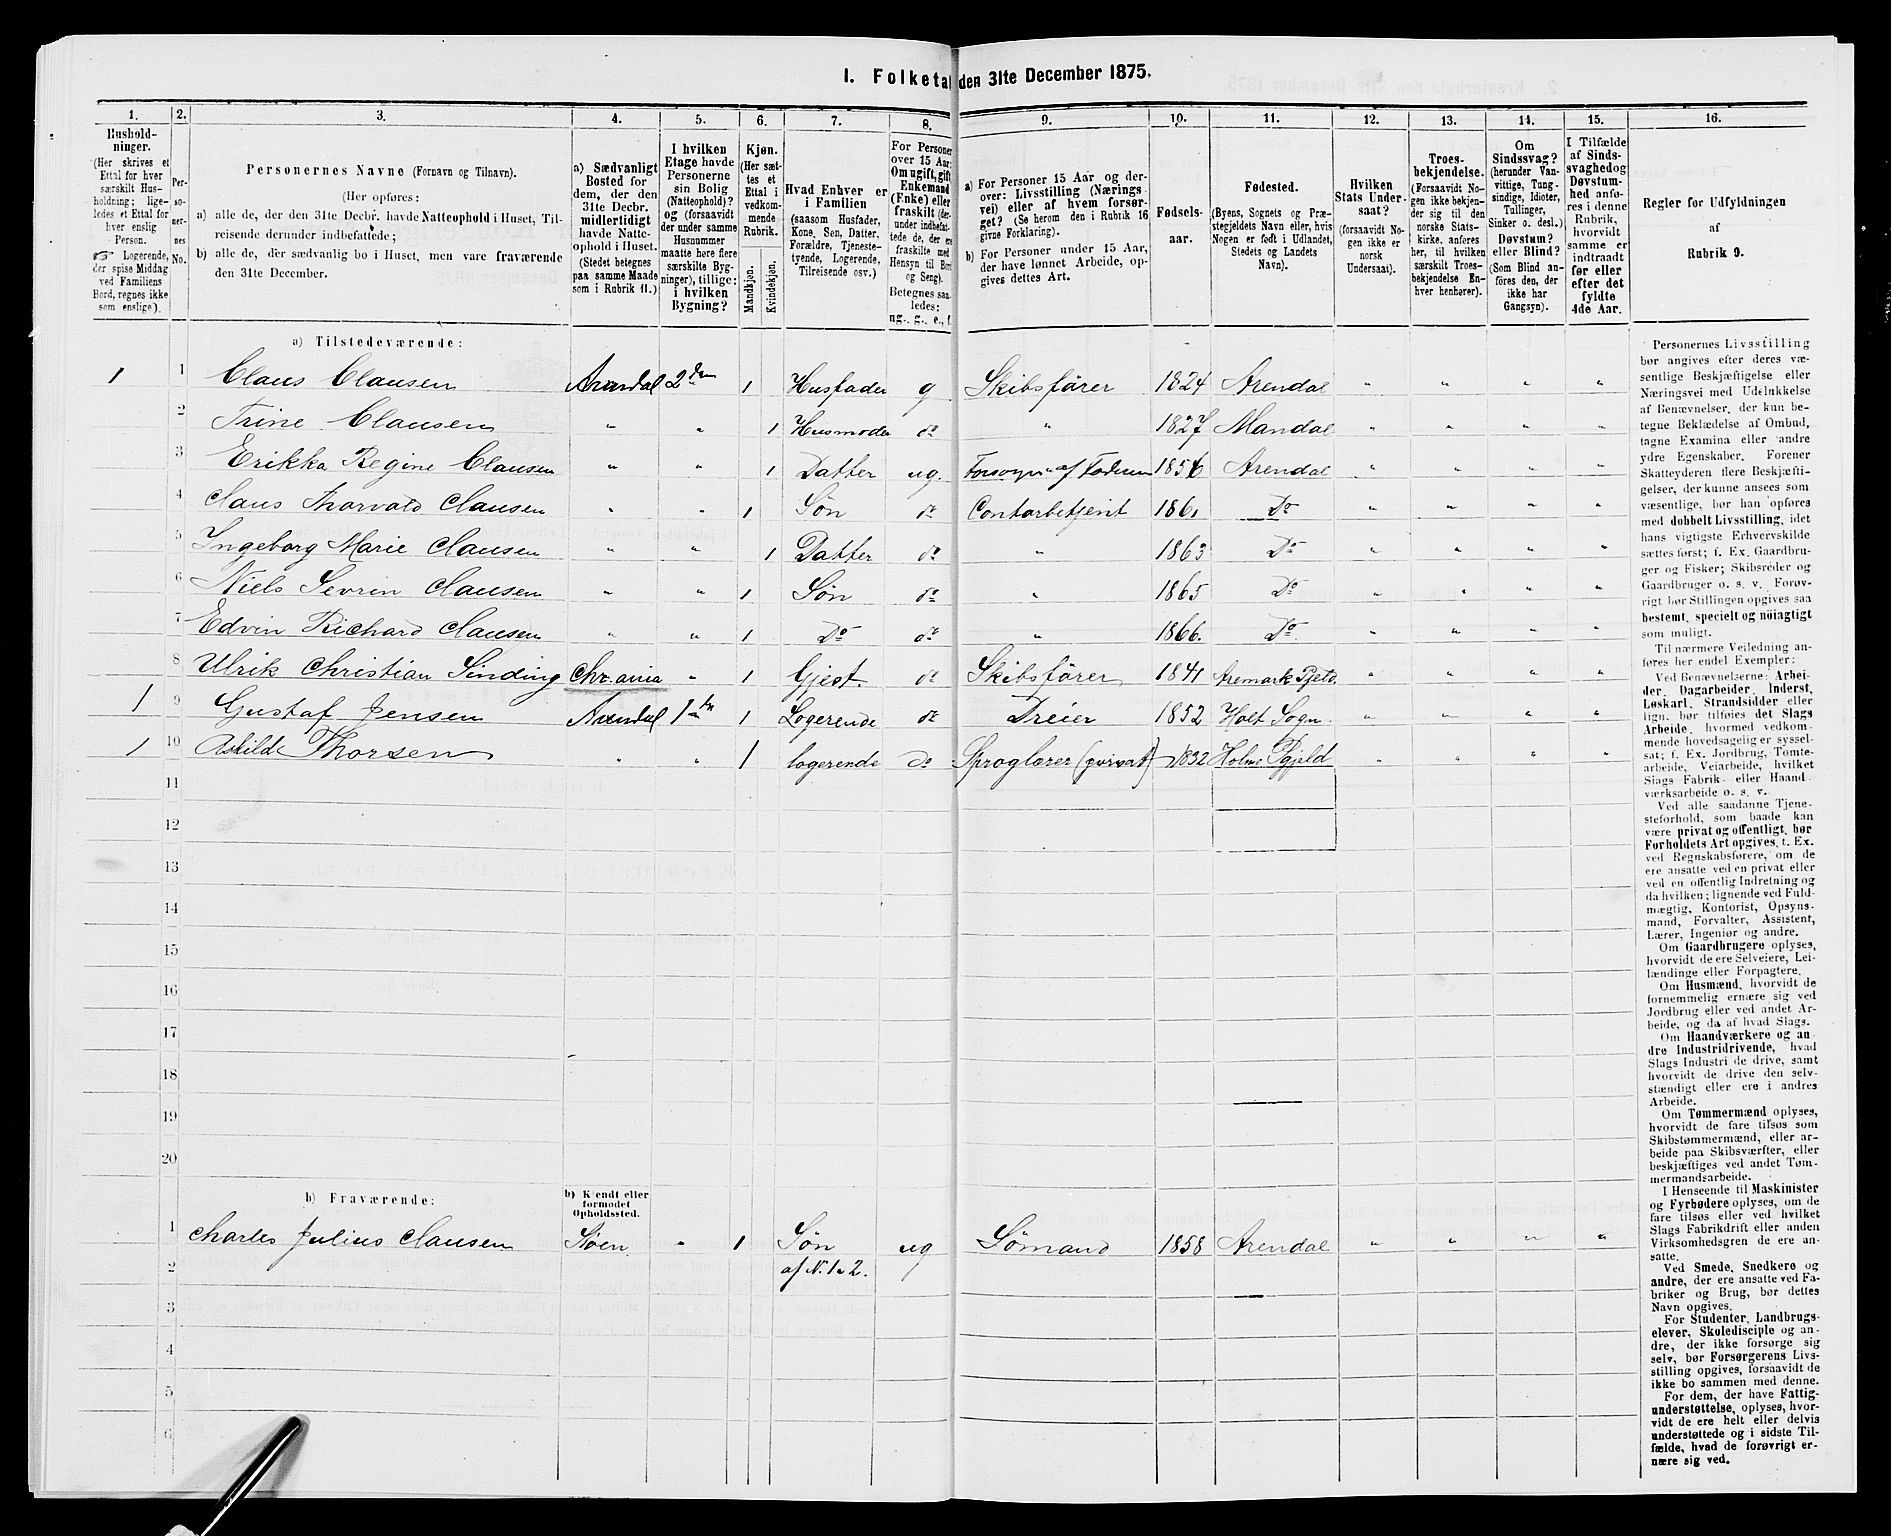 I. Folketal den 31te December 1875.
1. 2. 3. 4. 5. 6. 7. 8. 9. 10. 11. 12. 13. 14. 15. 16.
Hushold-
ninger.
(Her skrives et
Ettal for hver
særskilt Hus-
holdning; lige-
ledes et Ettal for
hver enslig
Person.
☞ Logerende,
der spise Middag
ved Familiens
Bord, regnes ikke
som enslige).
Per-
so-
ner-
nes
No.
Personernes Navne (Fornavn og Tilnavn).
(Her opføres:
a) alle de, der den 31te Decbr. havde Natteophold i Huset, Til-
reisende derunder indbefattede;
b) alle de, der sædvanlig bo i Huset, men vare fraværende
den 31te December.
a) Sædvanligt
Bosted for
dem, der den
31te Decbr.
midlertidigt
havde Natte-
ophold i Huset.
(Stedet betegnes
paa samme Maade
som i Rubrik 11.)
I hvilken
Etage havde
Personerne
sin Bolig
(Natteophold)?
og (forsaavidt
der under samme
Husnummer
maatte høre flere
særskilte Byg-
ninger), tillige:
i hvilken
Bygning?
Kjøn.
(Her sæt-
tes et
Ettal i
vedkom-
mende
Rubrik.
Mandkjøn.
Kvindekjøn.
Hvad Enhver er
i Familien
(saasom Husfader,
Kone, Søn, Datter,
Forældre, Tjeneste-
tyende, Logerende,
Tilreisende osv.)
For Personer
over 15 Aar:
Om ugift, gift,
Enkemand
(Enke) eller
fraskilt (der-
under indbefat-
tede de, der ere
fraskilte med
Hensyn til Bord
og Seng).
Betegnes saa-
ledes:
ug., g., e., f.
a) For Personer 15 Aar og der-
over: Livsstilling (Nærings-
vei) eller af hvem forsør-
get? (Se herom den i Rubrik 16
givne Forklaring).
b) For Personer under 15 Aar,
der have lønnet Arbeide, op-
gives dettes Art.
Fødsels-
aar.
Fødested.
(Byens, Sognets og Præ-
stegjeldets Navn eller, hvis
Nogen er født i Udlandet,
Stedets og Landets
Navn).
Hvilken
Stats Under-
saat?
(forsaavidt No-
gen ikke er
norsk
Undersaat).
Troes-
bekjendelse.
(Forsaavidt No-
gen ikke bekjen-
der sig til den
norske Stats-
kirke, anføres
her, til hvilken
særskilt Troes-
bekjendelse En-
hver henhører).
Om
Sindssvag?
(herunder Van-
vittige, Tung-
sindige, Idioter,
Tullinger,
Sinker o. desl.)
Døvstum?
eller Blind?
(Som Blind an-
føres den, der
ikke har
Gangsyn).
I Tilfælde
af Sinds-
svaghed og
Døvstum-
hed anfø-
res i denne
Rubrik,
hvorvidt
samme er
indtraadt
før eller
efter det
fyldte
4de Aar.
Regler for Udfyldningen
af
Rubrik 9.
a) Tilstedeværende:
1 1 Claus Clausen Arendal 2den 1 Husfader g Skibsfører 1824 Arendal " " " "
2 Trine Clausen " " 1 Husmoder do " 1827 Mandal " " " "
3 Erikka Regine Clausen " " 1 Datter ug. Forsørges af Faderen 1856 Arendal " " " "
4 Claus Thorvald Clausen " " 1 Søn do Contorbetjent 1861 Do " " " "
5 Ingeborg Marie Clausen " " 1 Datter do " 1863 Do " " " "
6 Niels Sevrin Clausen " " 1 Søn do " 1865 Do " " " "
7 Edvin Richard Clausen " " 1 Do do " 1866. Do " " " "
8 Ulrik Christian Sinding Chr.ania " 1 Gjest. do Skibsfører 1841 Aremark Pjeld. " " " "
1 9 Gustaf Jensen Arendal 1ste 1 Logerende do Dreier 1852 Holt Sogn " " " "
1 10 Askilde Thorsen " " 1 logerende do Sproglærer (privat) 1832 Holme Pgjeld " " " "
11
12
13
14
15
16
17
18
19
20
b) Fraværende:
b) Kjendt eller
formodet
Opholdssted.
1 Charles Julius Clausen Søen. " 1 Søn ug Sømand 1858 Arendal " " " "
2 af N. 1 o 2.
3
4
5
6
Personernes Livsstilling
bør angives efter deres væ-
sentlige Beskjæftigelse eller
Næringsvei med Udelukkelse
af Benævnelser, der kun be-
tegne Beklædelse af Ombud,
tagne Examina eller andre
ydre Egenskaber. Forener
Skatteyderen flere Beskjæfti-
gelser, der kunne ansees som
væsentlige, bør han opføres
med dobbelt Livsstilling, idet
hans vigtigste Erhvervskilde
sættes først; f. Ex. Gaardbru-
ger og Fisker; Skibsreder og
Gaardbruger o. s. v. Forøv-
rigt bør Stillingen opgives saa
bestemt, specielt og nøiagtigt
som muligt.
Til nærmere Veiledning an-
føres her endel Exempler:
Ved Benævnelserne: Arbei-
der, Dagarbeider, Inderst,
Løskarl, Strandsidder eller
lign. bør tilføies det Slags
Arbeide, hvormed vedkom-
mende hovedsagelig er syssel-
sat; f. Ex. Jordbrug, Tomte-
arbeide, Veiarbeide, hvilket
Slags Fabrik- eller Haand-
værksarbeide o. s. v.
Ved alle saadanne Tjene-
steforhold, som baade kan
være privat og offentligt, bør
Forholdets Art opgives, t. Ex.
ved Regnskabsførere, om de
ere ansatte ved en privat eller
ved en offentlig Indretning og
da hvilken; lignende ved Fuld-
mægtig, Kontorist, Opsyns-
mand, Forvalter, Assistent,
Lærer, Ingeniør og andre.
Om Gaardbrugere oplyses,
hvorvidt de ere Selveiere, Lei-
lændinge eller Forpagtere.
Om Husmænd, hvorvidt de
fornemmelig ernære sig ved
Jordbrug eller ved andet Ar-
beide, og da af hvad Slags.
Om Haandværkere og an-
dre Industridrivende, hvad
Slags Industri de drive, samt
hvorvidt de drive den selv-
stændigt eller ere i andres
Arbeide.
Om Tømmermænd oplyses,
hvorvidt de fare tilsøs som
Skibstømmermænd, eller ar-
beide paa Skibsværfter, eller
beskjæftiges ved andet Tøm-
mermandsarbeide.
I Henseende til Maskinister
og Fyrbødere oplyses, om de
fare tilsøs eller ved hvilket
Slags Fabrikdrift eller anden
Virksomhedsgren de ere an-
satte.
Ved Smede, Snedkere og
andre, der ere ansatte ved Fa-
briker og Brug, bør dettes
Navn opgives.
For Studenter, Landbrugs-
elever, Skoledisciple og an-
dre, der ikke forsørge sig
selv, bør Forsørgerens Livs-
stilling opgives, forsaavidt de
ikke bo sammen med denne.
For dem, der have Fattig-
understøttelse, oplyses, hvor-
vidt de ere helt eller delvis
understøttede og i sidste Til-
fælde, hvad de forøvrigt er-
nære sig ved.